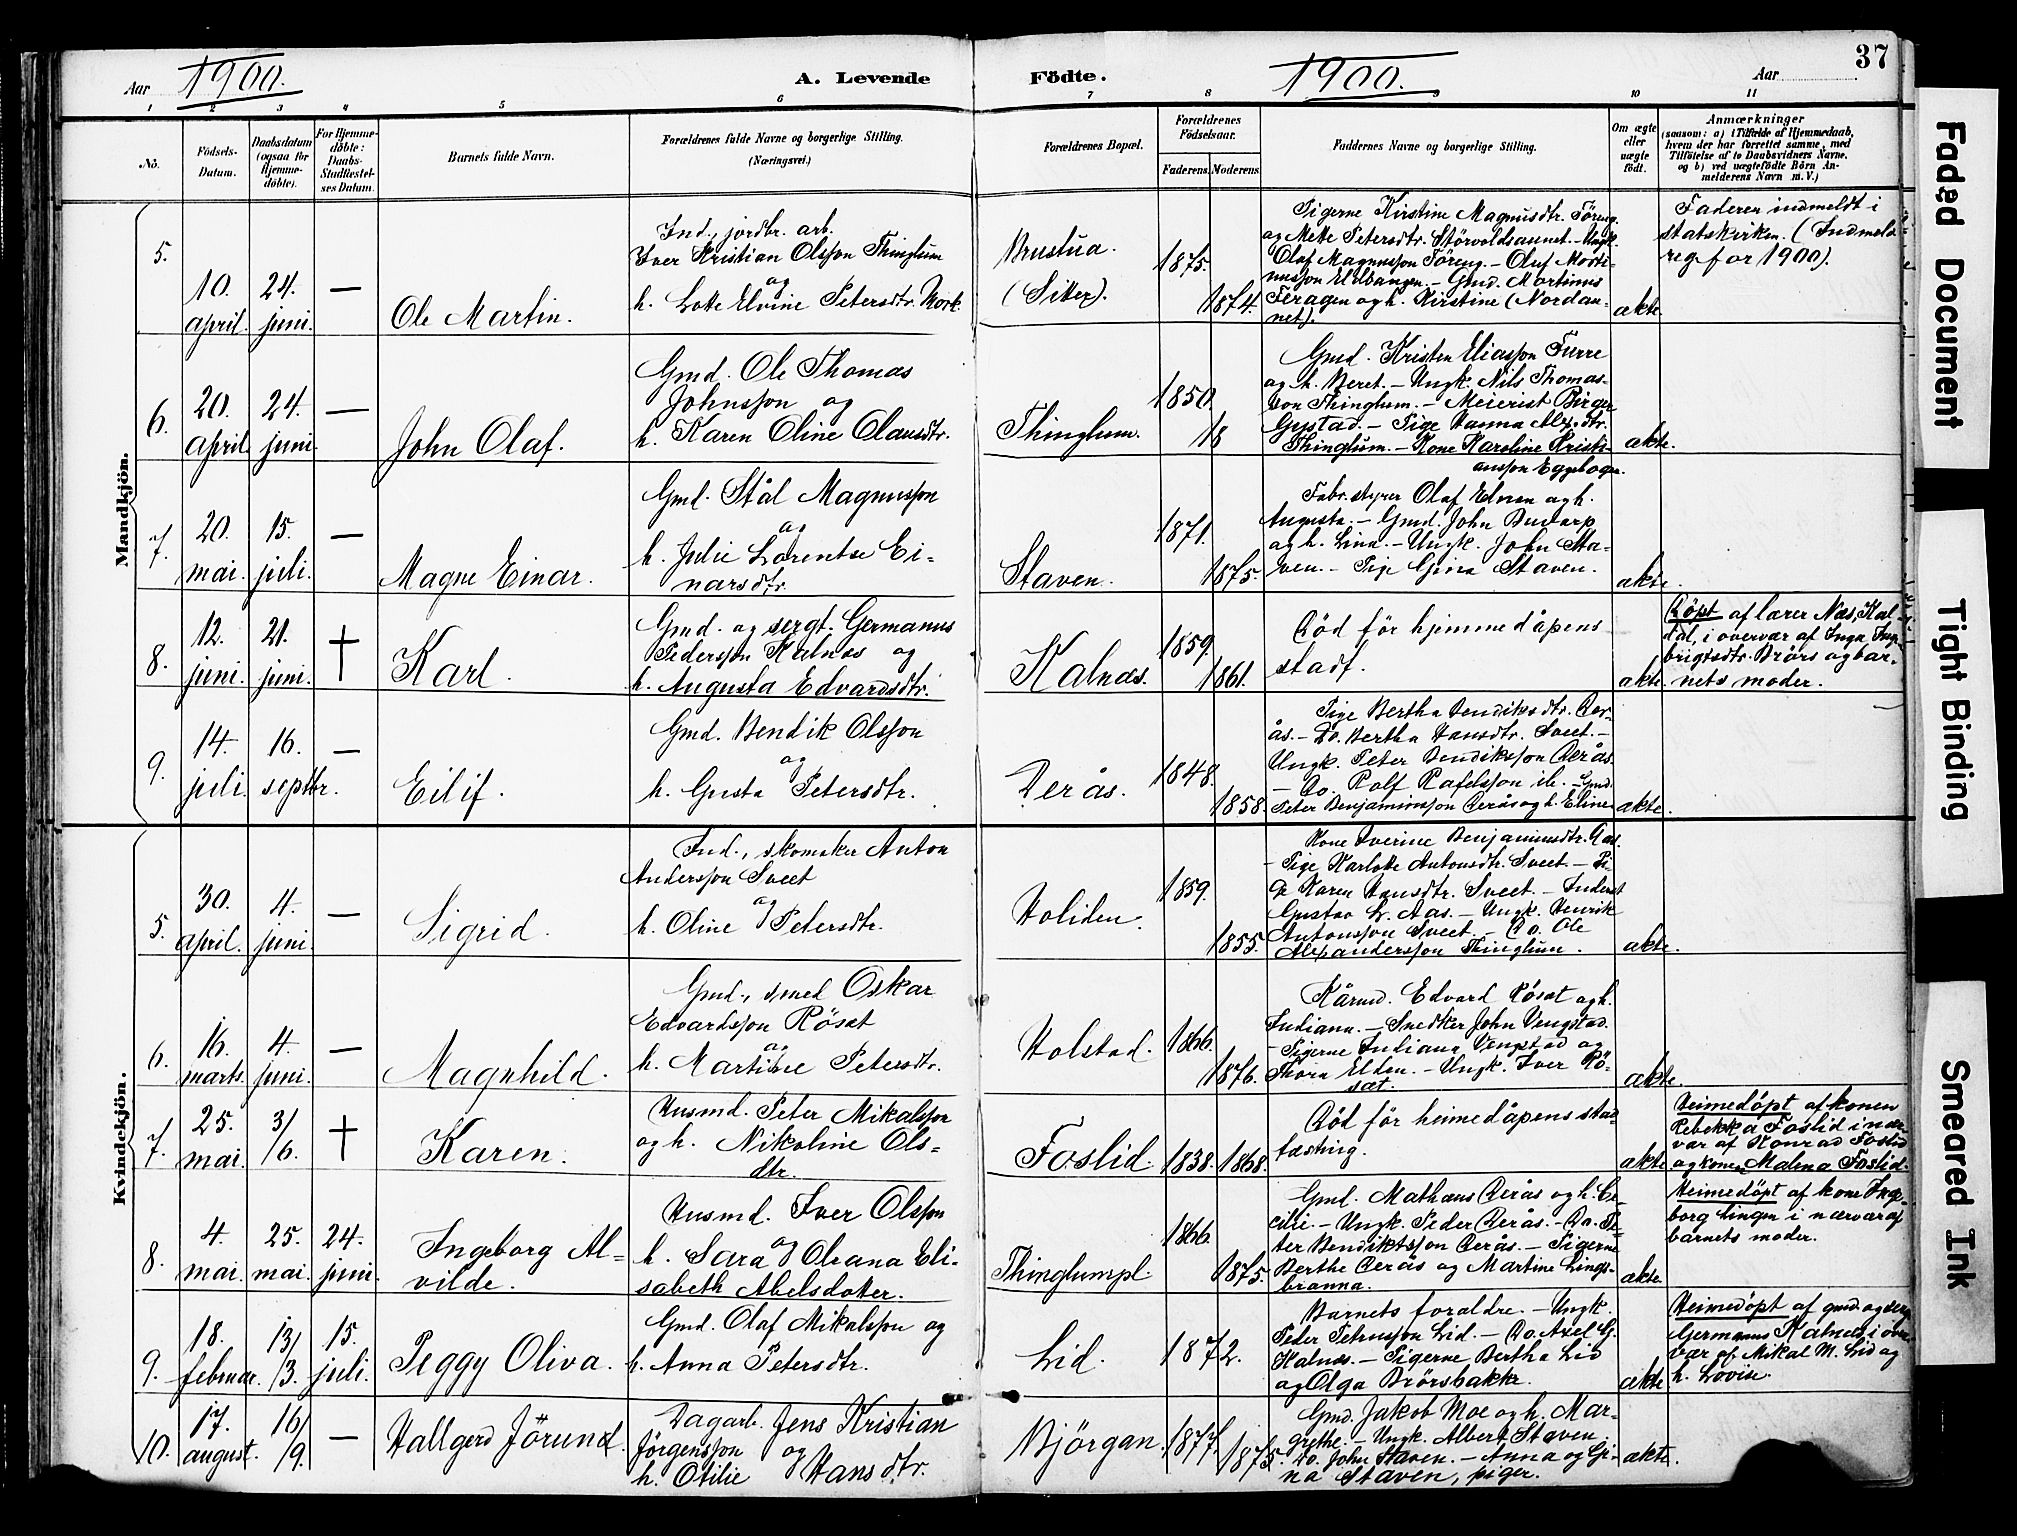 37
Aar 1900. A. Levende Födte. 1900. Aar
1 2 3 4 5 6 7 8 9 10 11
No.
Födsels-
Datum.
Daabsdatum
(ogsaa for
Hjemme-
döbte).
For Hjemme-
döbte:
Daabs-
Stadfæstel-
ses Datum.
Barnets fulde Navn.
Forældrenes fulde Navne og borgerlige Stilling.
(Næringsvei.)
Forældrenes Bopæl.
Forældrenes
Födselsaar.
Faderens. Moderens.
Faddernes Navne og borgerlige Stilling.
Om ægte
eller
uægte
födt.
Anmærkninger
(saasom: a) i Tilfælde af Hjemmedaab,
hvem der har forrettet samme, med
Tilföielse af to Daabsvidners Navne.
og b) ved uægtefödte Börn An-
melderens Navn m. V.)
Mandkjön.
5.
10.
april.
24.
juni.
—
Ole Martin.
Ind., jordbr. arb.
Iver Kristian Olsson Thinglum
og
h. Lotte Elvine Petersdtr. Mork.
(Sitter).
1875.
1874.
Pigerne Kirstine Magnusdtr. Föreng
og Mette Petersdtr. Störvoldsaunet. – Ungk.
Olaf Magnusson Föreng. – Oluf Morti-
nusson Eldbangen. – Gmd. Martinus
Feragen og h. Kirstine (Nordau-
net).
ækte.
Faderen indmeldt i
statskirken. (Indmeld.
reg. for 1900).
6.
20.
april.
24.
juni.
—
John Olaf.
Gmd. Ole Thomas
Johnsson og
h. Karen Oline Olausdtr.
Thinglum.
1850.
18
Gmd. Kristen Eliasson Furre
og h. Beret. – Ungk. Nils Thomas-
son Thinglum. – Meierist Birger
Gystad. – Pige Hanna Alexdtr.
Thinglum. – Kone Karoline Kristi-
ansson Eggebogen.
ækte.
7.
20.
mai.
15.
juli.
—
Magne Einar.
Gmd. Stål Magnusson
og
h. Julie Lorentse Ei-
narsdtr.
Staven.
1871.
1875.
Fabr. styrer Olaf Elden og h.
Augusta. – Gmd. John Buvarp
og h. Lina. – Ungk. John Sta-
ven. – Pige Gina Staven.
ækte.
8.
12.
juni.
21.
juni.
†
Karl.
Gmd. og sergt. Germanus
Pedersson Kalnæs og
h. Augusta Edvardsdtr.
Kalnæs.
1859.
1861.
Död för hjemmedåpens
stadf.
ækte.
Döpt af lærer Næs, Kal-
dal, i overvær af Inga Inge-
brigtsdtr. Brörs og bar-
nets moder.
9.
14.
juli.
16.
septbr.
—
Eilif.
Gmd. Bendik Olsson
og
h. Gusta Petersdtr.
Derås.
1848.
1858.
Pige Bertha Bendiksdtr. Der-
ås. – Do. Bertha Hansdtr. Sveet. –
Ungk. Peter Bendiksson Derås
– Do. Rolf Rafelsson ib. – Gmd.
Peter Benjaminsson Derås og h. Eline.
ækte.
Kvindekjön.
5.
30.
april.
4.
juni.
—
Sigrid.
Ind., skomaker Anton
Andersson Sveet
og
h. Oline Petersdtr.
Holiden.
1859.
1855.
Kone Iverine Benjaminsdtr. Aas.
– Pige Karlotte Antonsdtr. Sveet – Pi-
ge Karen Hansdtr. Sveet. – Inderst
Gustav L. Aas. – Ungk. Henrik
Antonsson Sveet. – Do. Ole
Alexandersson Thinglum.
ækte.
6.
16.
marts.
4.
juni.
—
Magnhild.
Gmd., smed Oskar
Edvardsson Rösæt
og
h. Martine Petersdtr.
Holstad.
1866.
1876.
Kårmd. Edvard Rösæt og h.
Indiana. – Snedker John Vengstad.
– Pigerne Juliana Vengstad og
Thora Elden. – Ungk. Iver Rö-
sæt.
ækte.
7.
25.
mai.
31/6.
†
Karen.
Husmd. Peter Mikalsson
og h. Nikoline Ols-
dtr.
Foslid.
1838.
1868.
Död för heimedåpens stad-
fæstning.
ækte.
Heimedöpt af konen
Rebekka Foslid i nær-
vær af Konrad Foslid
og konen Malena Foslid.
8.
4.
mai.
25.
mai.
24.
juni.
Ingeborg Al-
vilde.
Husmd. Iver Olsson
og
h. Sara Oleana Eli-
sabeth Abelsdotter.
Thinglumpl.
1866.
1875.
Gmd. Mathæus Derås og h. Ce-
cilie. – Ungk. Peder Derås. – Do. Pe-
ter Bendiktsson Derås. – Pigerne
Berthe Derås og Martine Lings-
branna.
ækte.
Heimedöpt af kone Inge-
borg Lingen i nærvær af
barnets moder.
9.
18.
februar.
13/3.
15.
juli.
Peggy Oliva.
Gmd. Olaf Mikalsson og
h. Anna Petersdtr.
Lid.
1872.
Barnets forældre. – Ungk.
Peder Petersson Lid. – Do. Axel G.
Kalnæs. – Pigerne Bertha Lid
og Olga Brörsbakke.
ækte.
Heimedöpt af gmd. og serg.
Germanus Kalnæs i over-
vær af Mikal M. Lid og
h. Lovise.
10.
17.
august.
16/9.
—
Hallgerd Jörund.
Dagarb. Jens Kristian
Jörgensson og
h. Otilie Hansdtr.
Björgan.
1877.
1875.
Gmd. Jakob Moe og h. Mar-
grethe. – Ungk. Albert Staven.
– Do. John Staven. – Anna og Gi-
na Staven, piger.
ækte.
Faded Document
Tight Binding
Smeared Ink